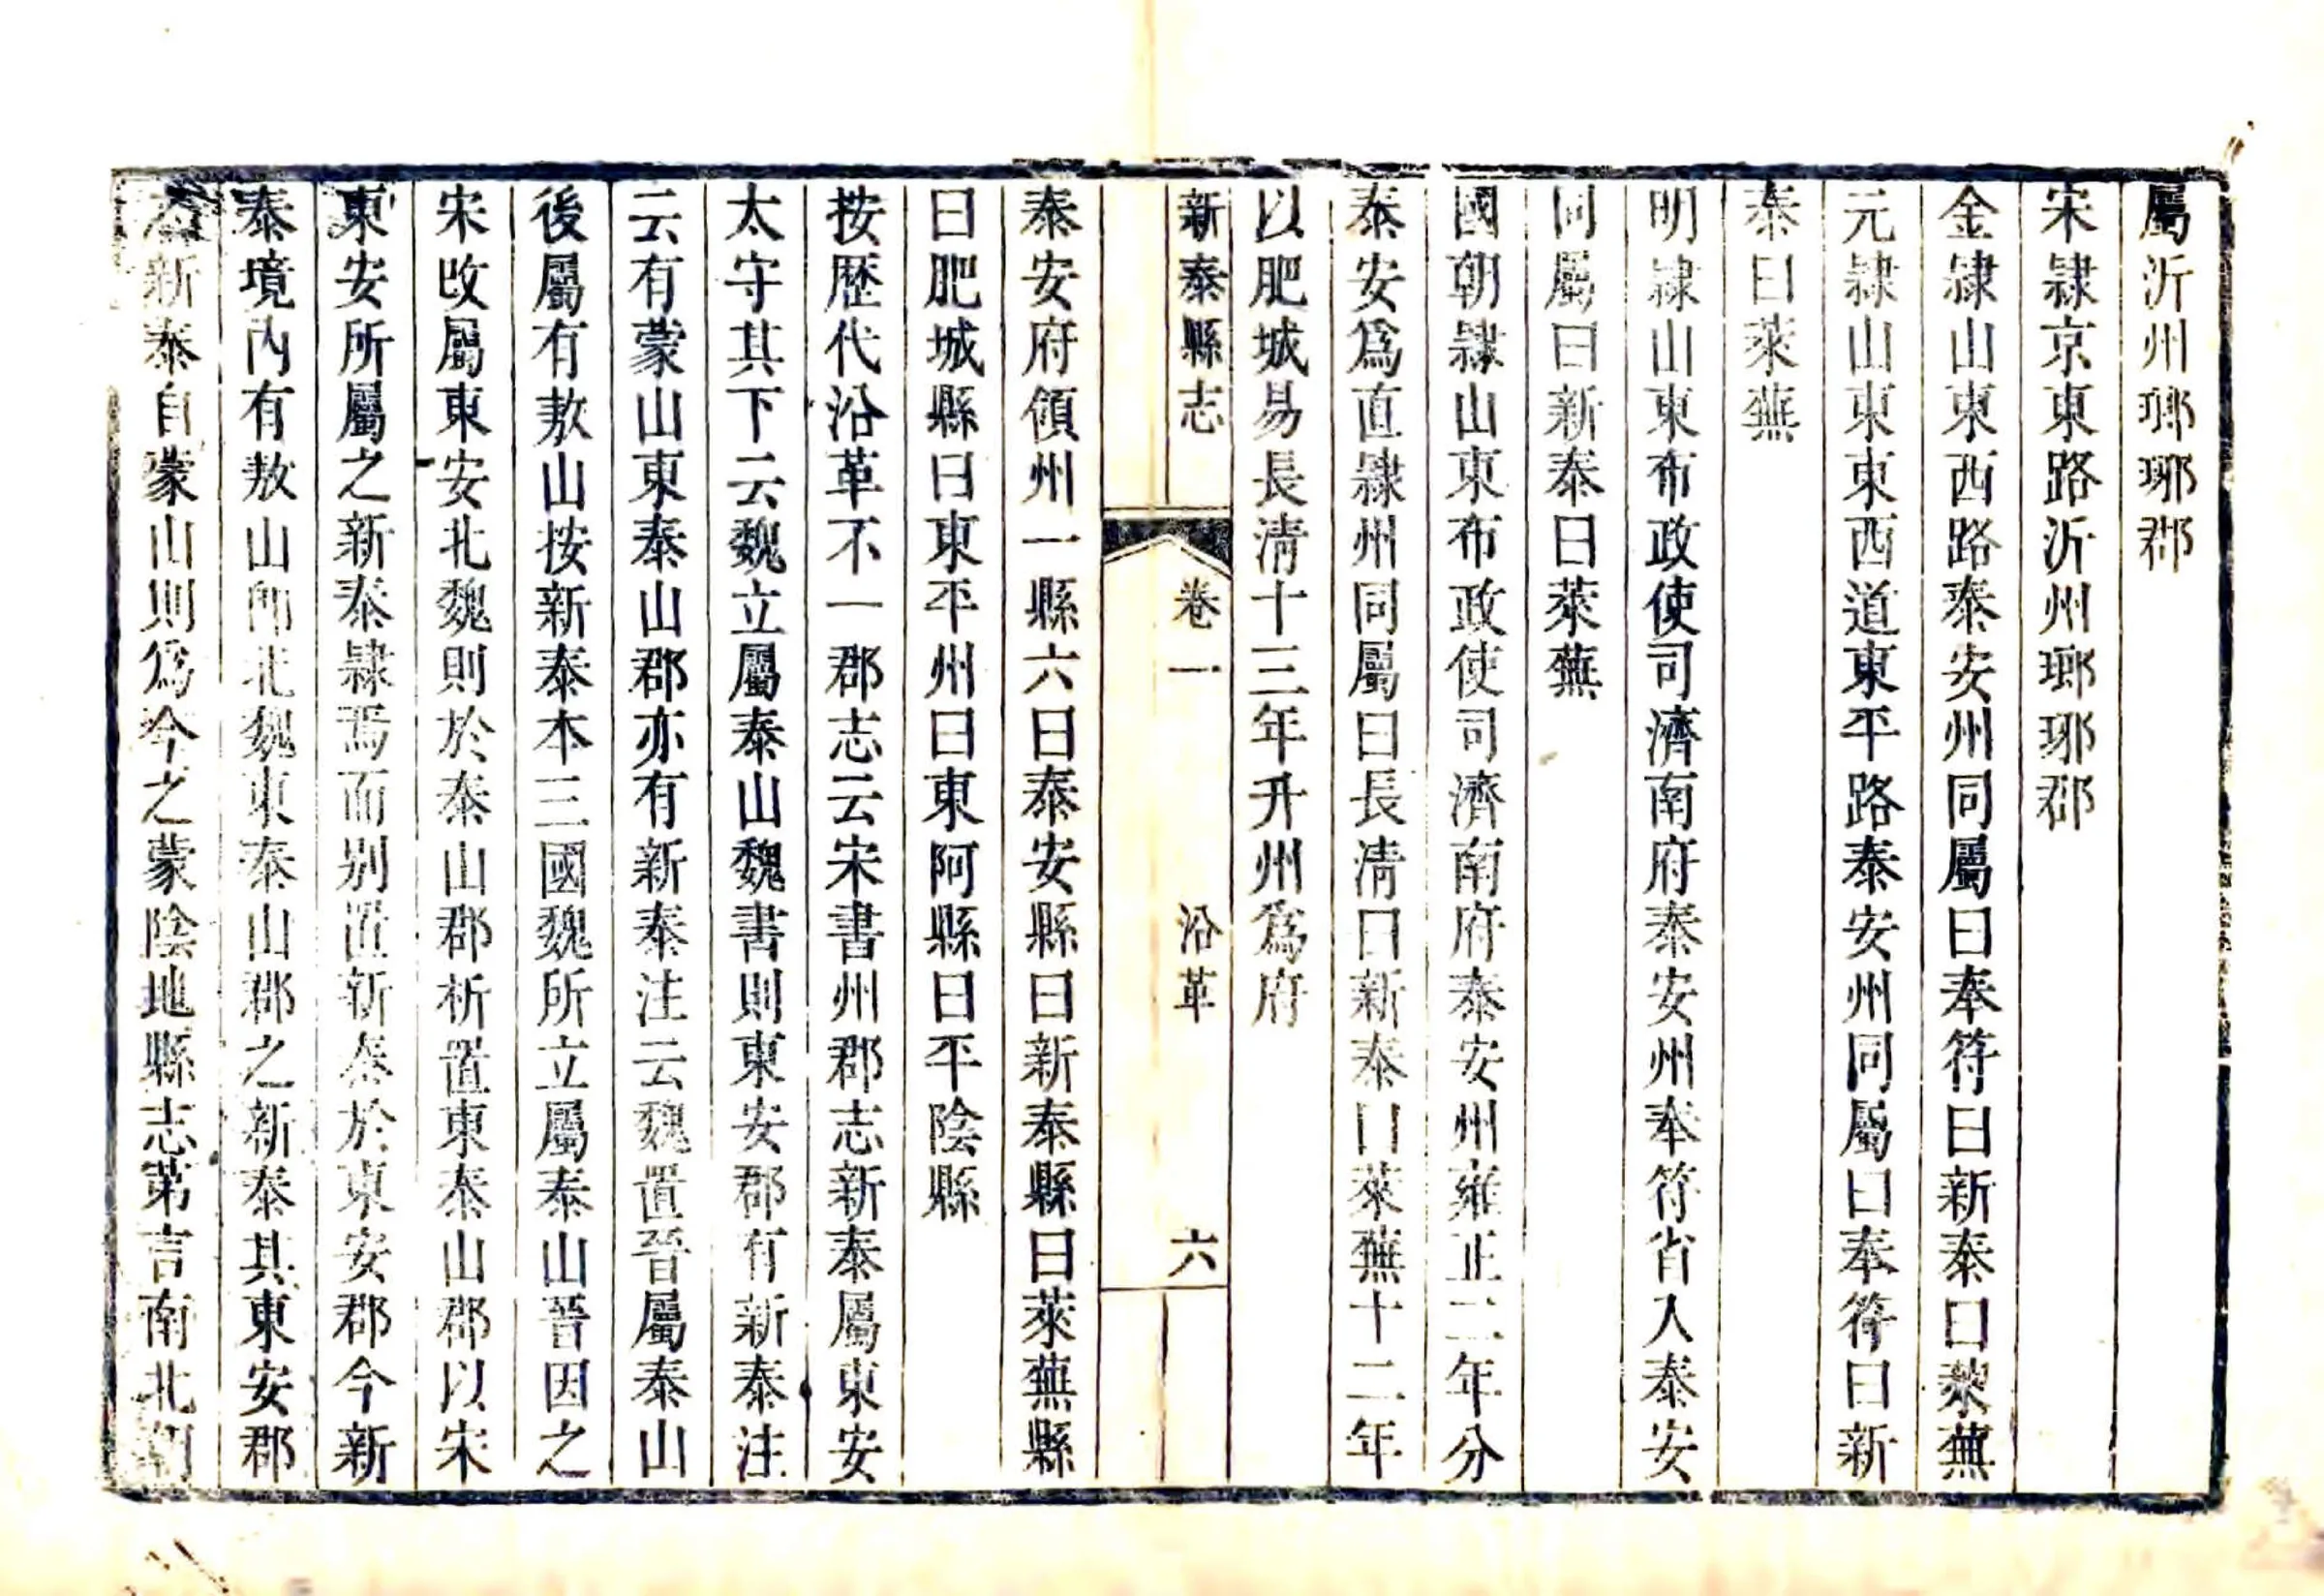 屬沂州瑯琊郡
宋隸京東路沂州瑯琊郡
金隸山東西路泰安州同屬曰奉符曰新泰曰萊蕪
元隸山東東西道東平路泰安州同屬曰奉符曰新
泰曰萊蕪
明隸山東布政使司濟南府泰安州奉符省入泰安
同屬曰新泰曰萊蕪
國朝隸山東布政使司濟南府泰安州雍正二年分
泰安爲直隸州同屬曰長清曰新泰曰萊蕪十二年
以肥城易長清十三年升州爲府
新泰縣志 卷一 沿革 六
泰安府領州一縣六曰泰安縣曰新泰縣曰萊蕪縣
曰肥城縣曰東平州曰東阿縣曰平陰縣
按歷代沿革不一郡志云宋書州郡志新泰屬東安
太守其下云魏立屬泰山魏書則東安郡有新泰注
云有蒙山東泰山郡亦有新泰注云魏置晉屬泰山
後屬有敖山按新泰本三國魏所立屬泰山晉因之
宋改屬東安北魏則於泰山郡析置東泰山郡以宋
東安所屬之新泰隸焉而别置新泰於東安郡今新
泰境内有敖山即北魏東泰山郡之新泰其東安郡
之新泰自蒙山則爲今之蒙陰地縣志第言南北朝